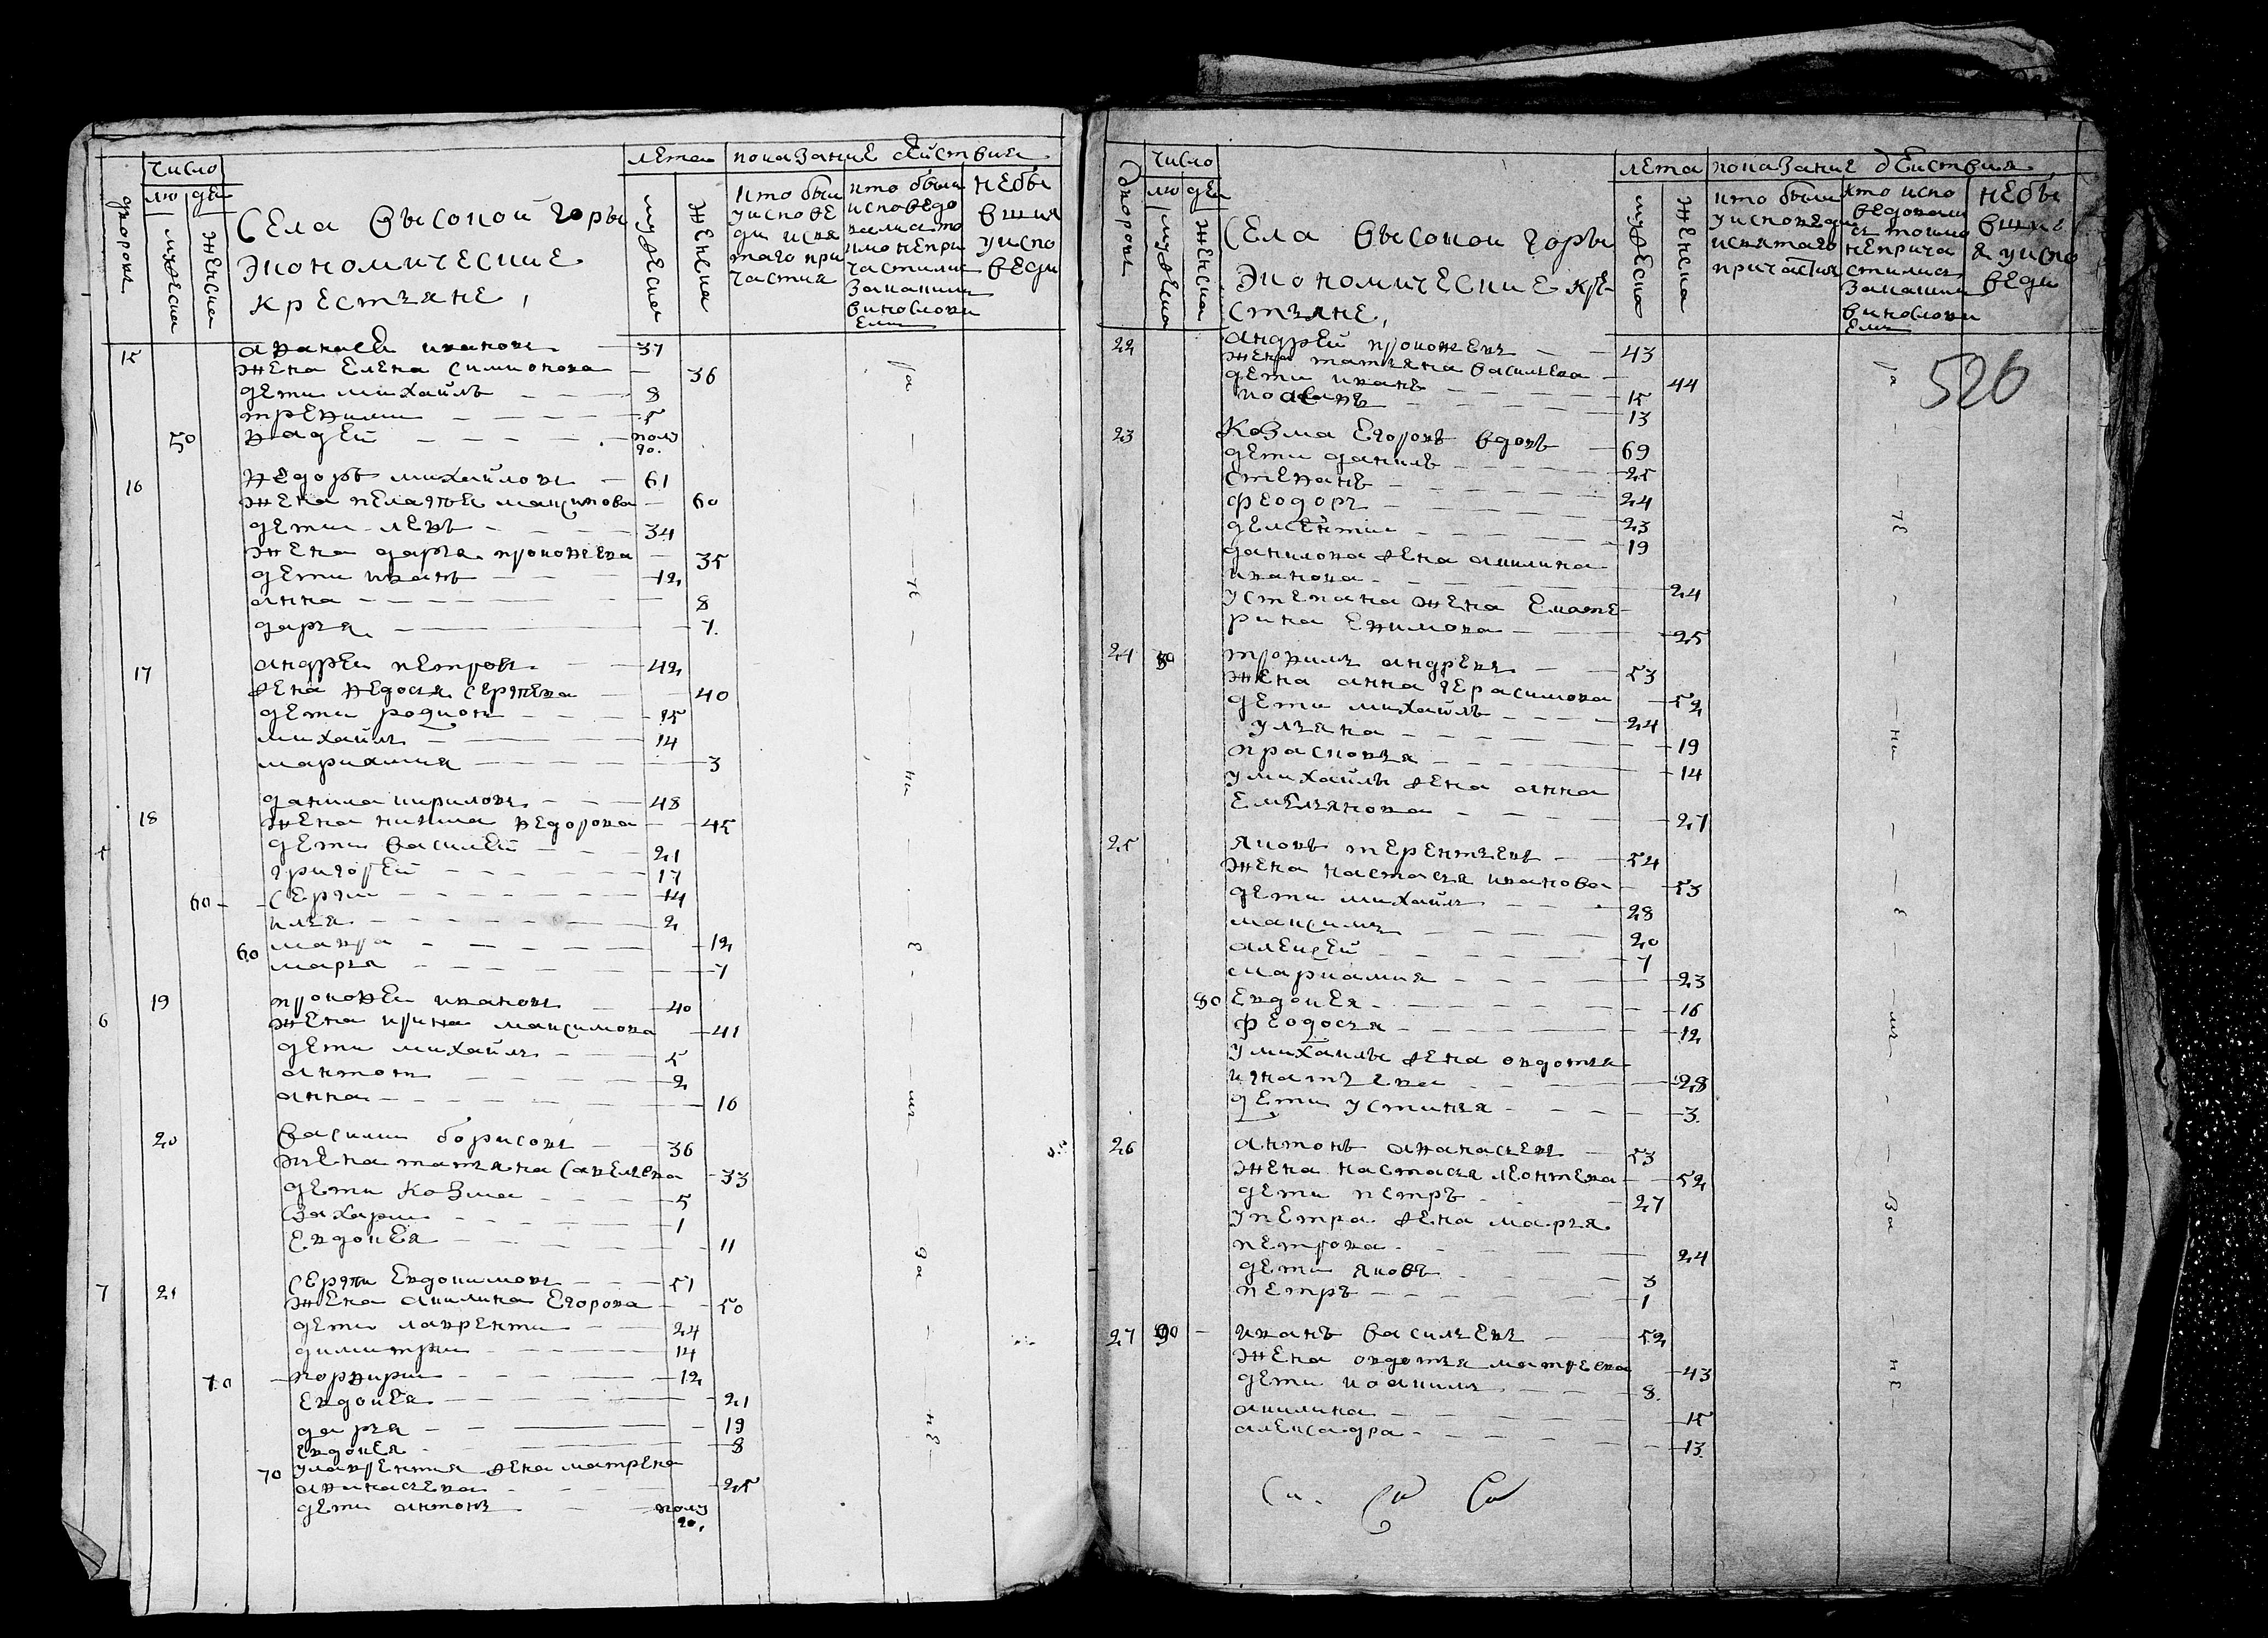 число
лю дей
дворовъ
мужеска
женска
Села высокой горы
экономические
крестьяне,
лета
мужеска
женска
показание действия
кто были
у испове
ди и свя
таго при
частия
кто были
исповедо
вались то
кмо непри
частились
за какимъ
винослови
емъ
небы
вшия
у испо
веди
15 Аѳанасей ивановъ 37
жена Елена симионова 36
дети михайлъ 8
треѳилий 5
50 ѳадей полу
го.
16 ѳедоръ михайловъ 61
жена пелагея максимова 60
дети левъ 34
жена дарья прокоѳева 35
дети иванъ 12
анна 8
дарья 7
17 андрей петровъ 42
жена ѳедосья сергеева 40
дети родионъ 15
михайлъ 14
мариамия 3
18 данила кириловъ 48
жена ѳедорова 45
5 дети василей 21
григорей 17
60 сергий 14
илья 2
60 мавра 12
марья 7
19 прокоѳей ивановъ 40
6 жена ирина максимова 41
дети михайлъ 5
антонъ 2
анна 16
20 василий борисовъ 36
жена татьяна савельева 33
дети козма 5
захарий 1
евдокея 11
7 21 сергий евдокимовъ 51
жена акилина егорова 50
дети лаврентий 24
димитрий 14
70 порѳирий 12
евдокея 21
дарья 19
евдокея 8
70 у лаврентия жена матрена
аѳанасьева 25
дети антонъ полу
го.
число
лю дей
дворовъ
мужеска
женска
Села высокой горы
экономические кре
стьяне,
лета
мужеска
женска
показание действия
кто были
у исповеди
и святаго
причастия
кто испо
ведовали
сь токмо
неприча
стились
за какимъ
винослови
емъ
небы
вшие
у испо
веди
526
22 андрей прокоѳевъ 43
жена татьяна васильева 44
дети иванъ 15
иоаннъ 13
23 козма егоровъ вдовъ 69
дети данилъ 25
стеѳанъ 24
феодоръ 23
дементий 19
данилова жена акилина
иванова 24
у стеѳана жена екате
рина еѳимова 25
24 80 троѳимъ андреевъ 53
жена анна герасимова 52
дети михайлъ 24
ульяна 19
прасковья 14
у михайлы жена анна
емельянова 27
25 яковъ терентьевъ 54
жена настасья иванова 53
дети михайлъ 28
максимъ 20
алексей 7
мариамия 23
80 евдокея 16
феодосья 12
у михайлы жена овдотья
игнатьева 28
дети устинья 3
26 антонъ аѳанасьевъ 53
жена настасья леонтева 52
дети петръ 27
у петра жена марья
петрова 24
дети яковъ 3
петръ 1
27 90 иванъ васильевъ 52
жена овдотья матѳеева 43
дети иоакимъ 8
акилина 15
александра 13